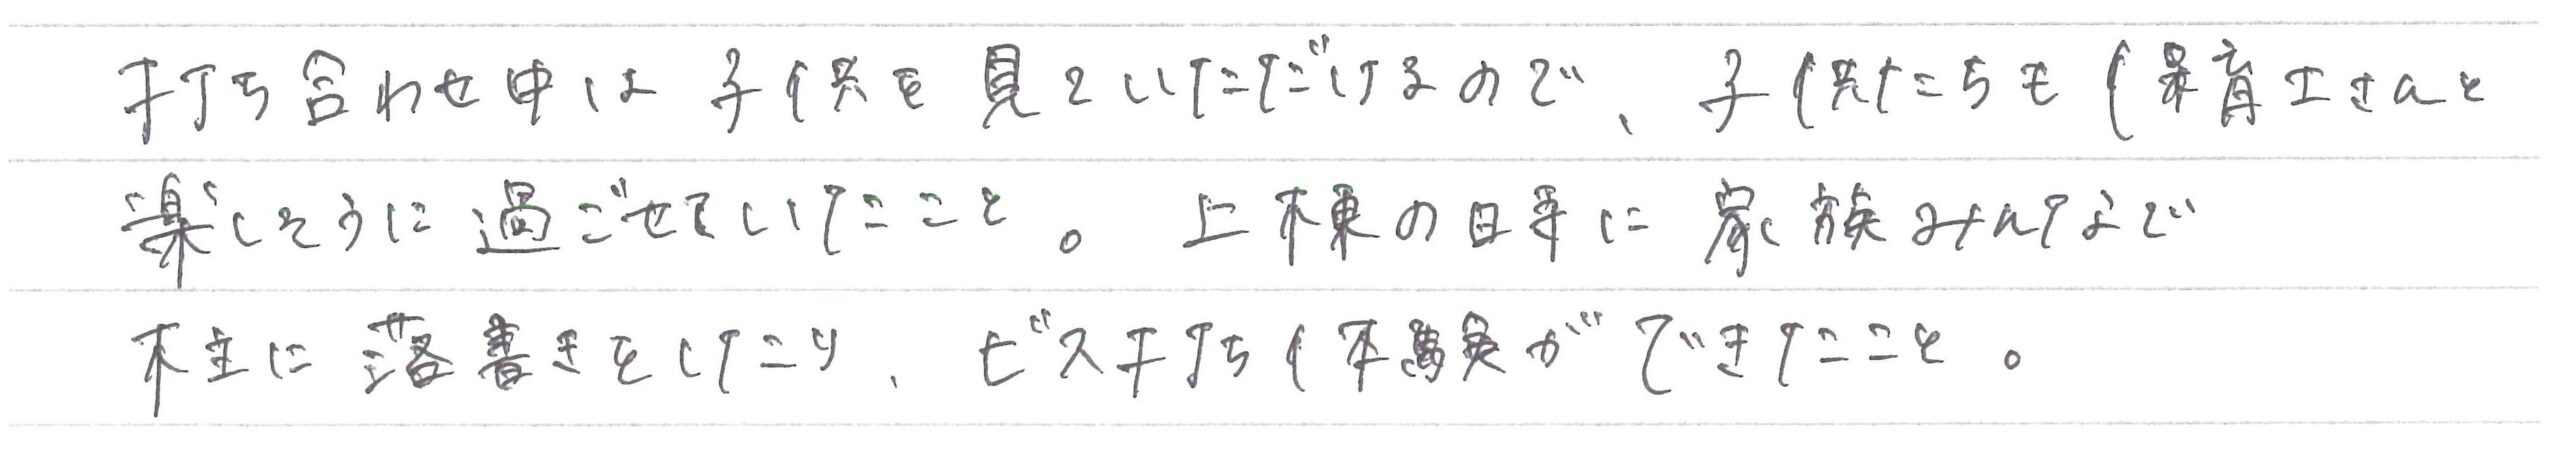 打ち合わせ中は子供を見ていただけるので、子供たちも保育士さんと
楽しそうに過ごせていたこと。上棟の日時に家族みんなで
柱に落書きをしたり、ビス打ち体験ができたこと。